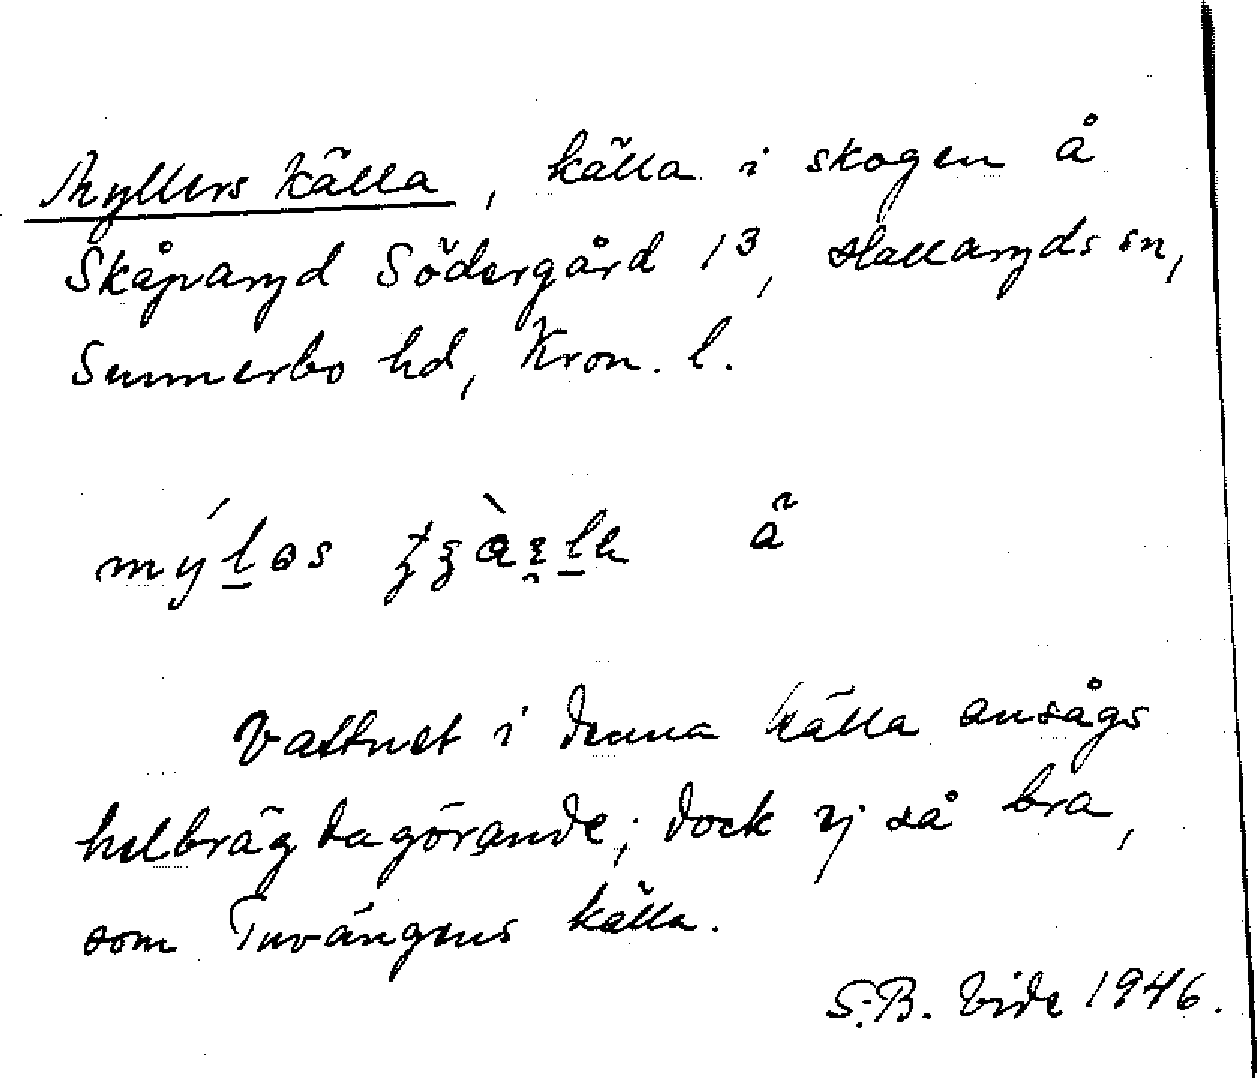 Myllers källa, källa i skogen å
Skåparyd Södergård 1³, Hallaryds sn,
Sunnerbo hd, Kron. l.
å
Vattnet i denna källa ansågs
helbrägdagörande; dock ej så bra,
som Tuvängens källa.
S.B. Vide 1946.